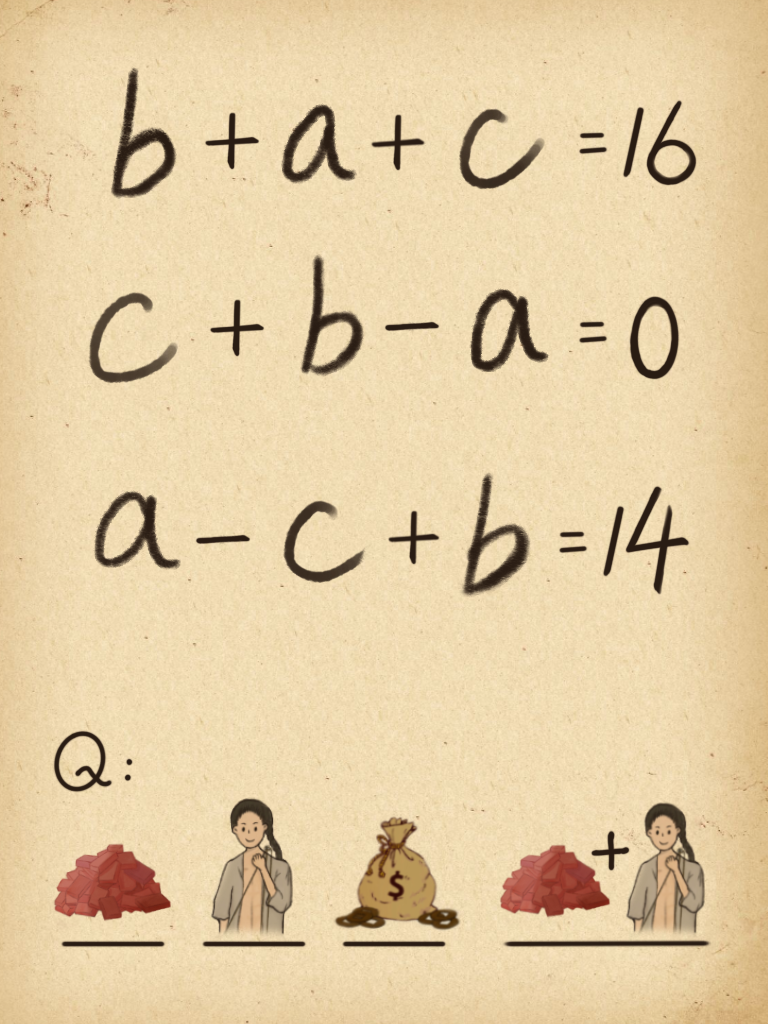 b + a + c = 16
c + b - a = 0
a - c + b = 14
Q:
$
+